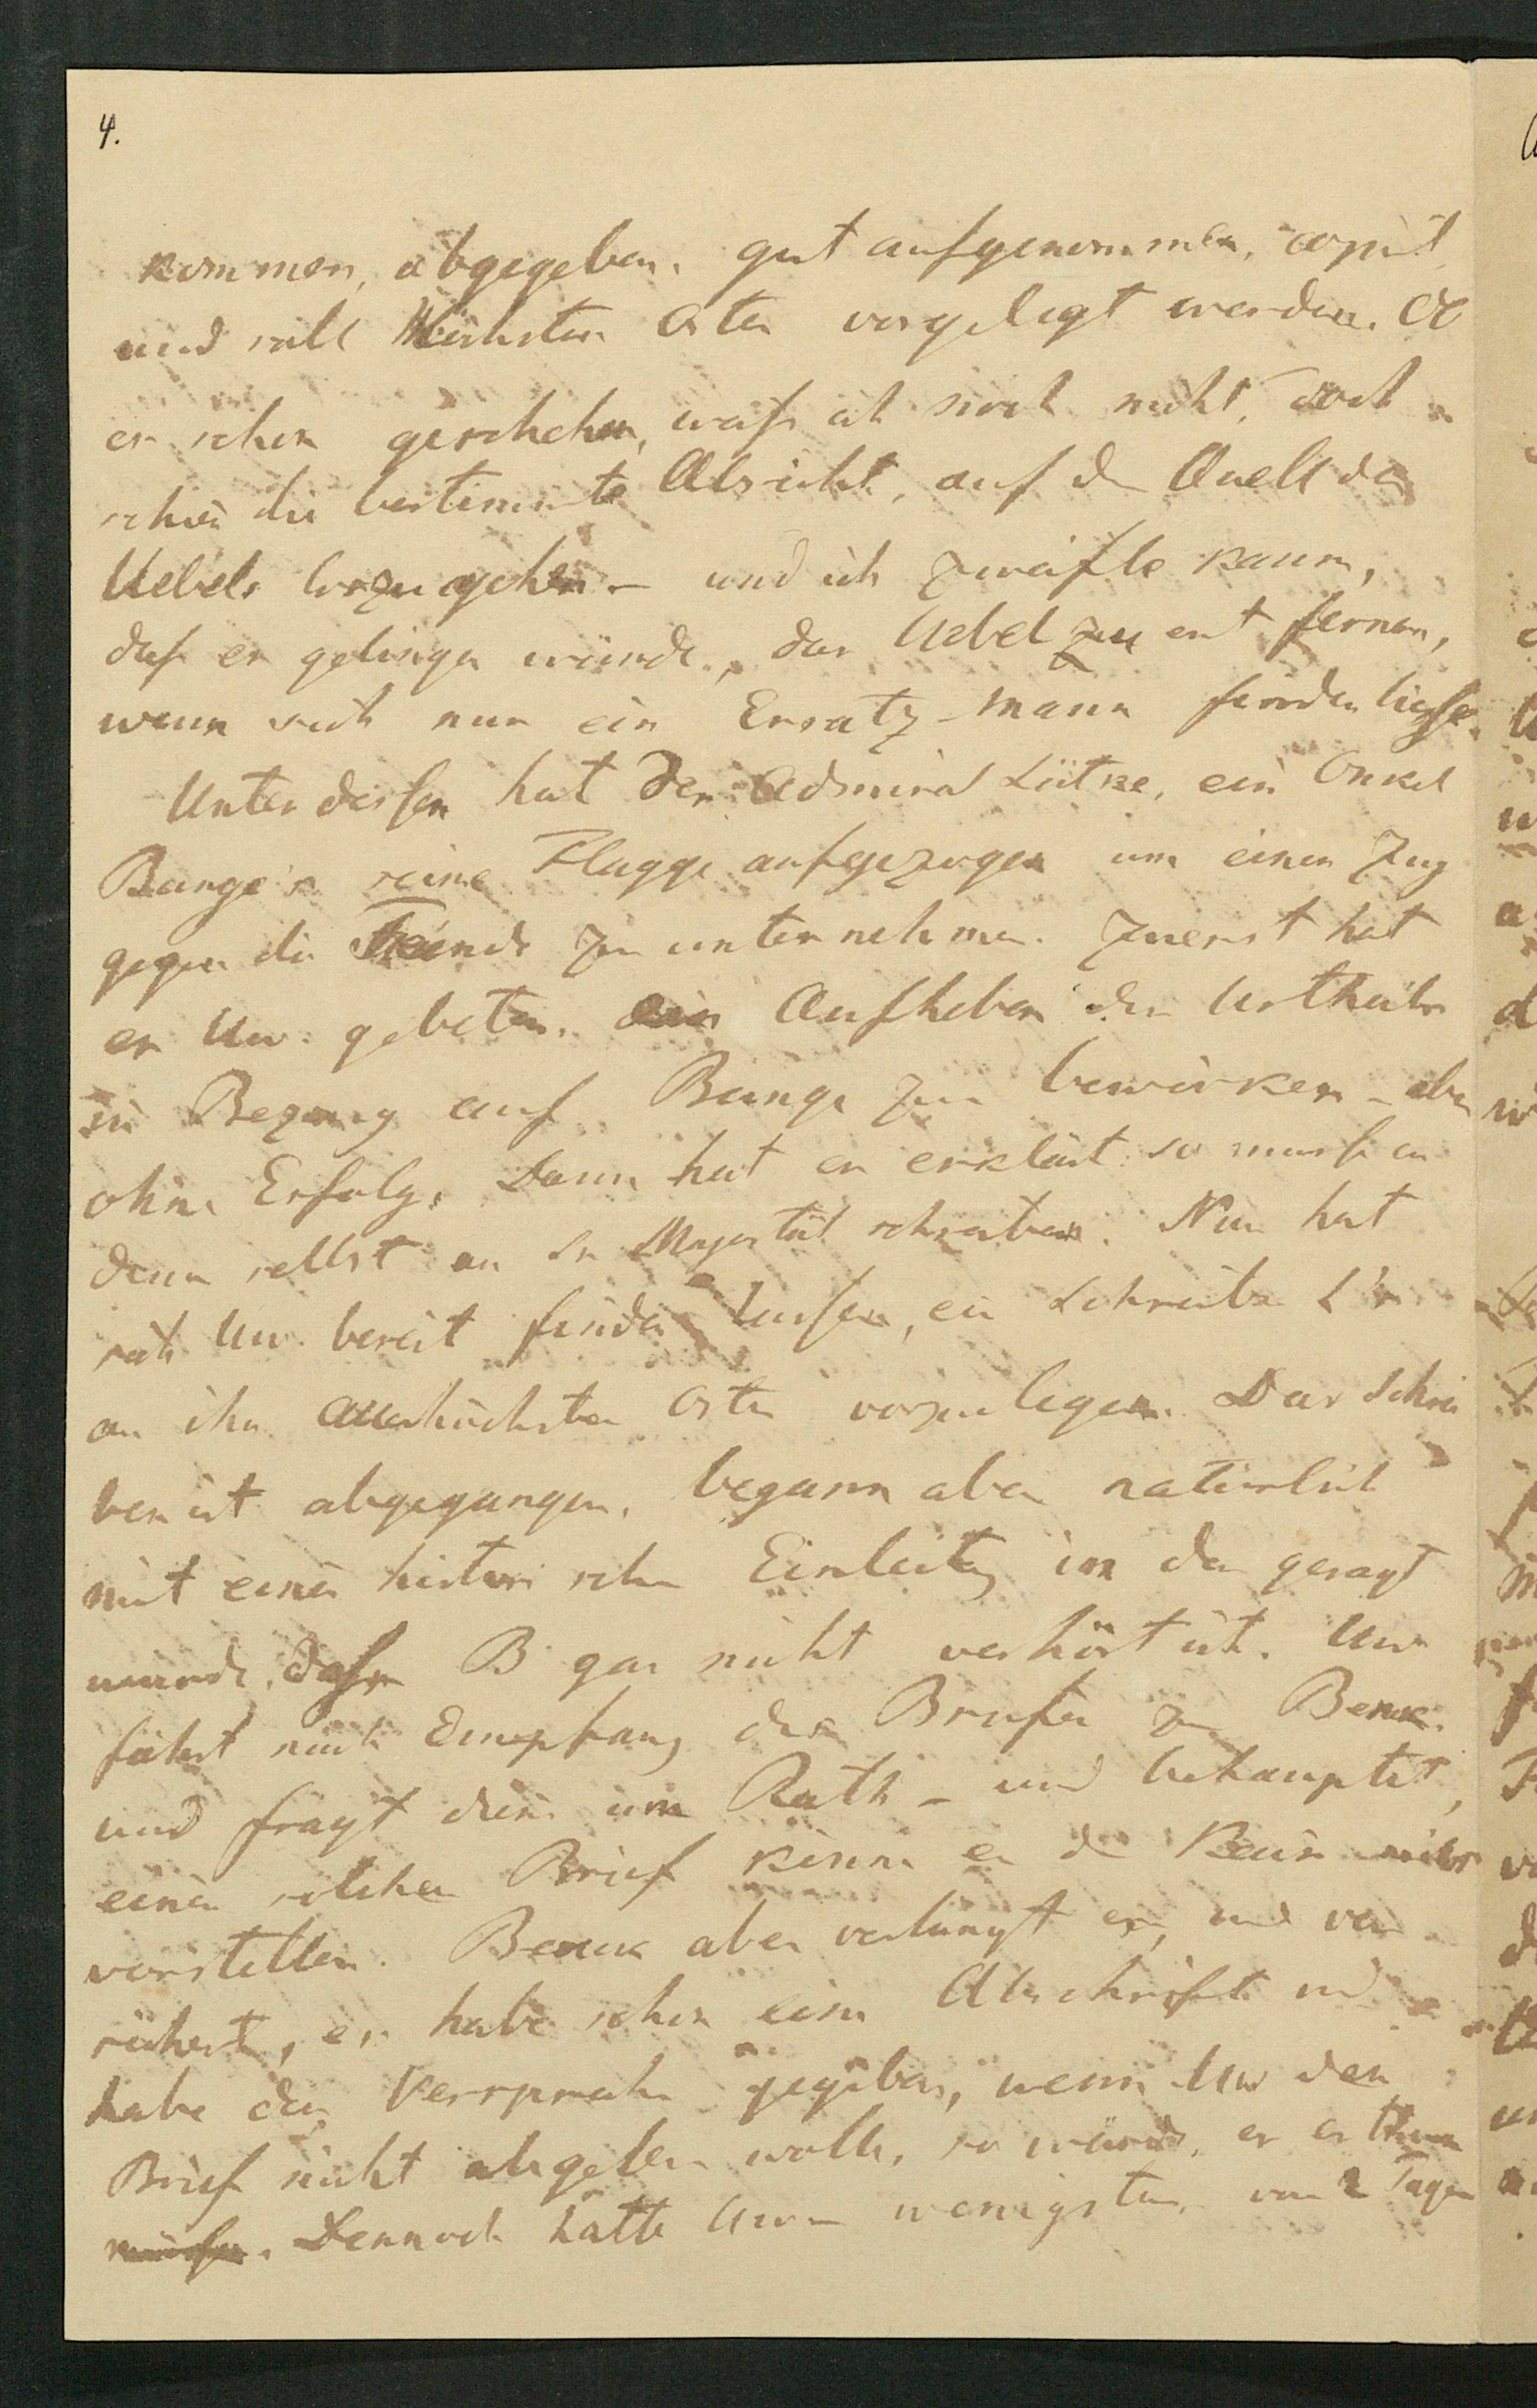 4.
kommen, abgegeben, gut aufgenommen, copirt
und soll Höchsten Orten vorgelegt werden. Ob
es schon geschehen, weiß ich noch nicht, doch
schien die bestimmte Absicht, auf den Quell des
Uebels loszugehen – und ich zweifle kaum,
daß es gelingen würde, das Uebel zu entfernen,
wenn sich nur ein Ersatz-Mann finden ließe.
Unterdessen hat der Admiral Lütke, ein Onkel
Bunge's seine Flagge aufgezogen um einen Zug
gegen die Feinde zu unternehmen. Zuerst hat
er Uw. gebeten, Aufheben des Urtheils
in Bezug auf Bunge zu bewirken – aber
ohne Erfolg. Dann hat er erklärt so müsse er
denn selbst an Sr Majestät schreiben. Nun hat
sich Uw. bereit finden lassen, ein Schreiben L's
an ihn allerhöchsten Orten vorzulegen. Das Schrei
ben ist abgegangen, begann aber natürlich
mit einer historischen Einleitung in der gesagt
wurde, daß B gar nicht verhört ist. Uw.
fährt nach Empfang des Briefes zu Benk.
und fragt diesen um Rath – und behauptet,
einen solchen Brief könne er dem Kaiser nicht
vorstellen. Benk aber verlangt es, und ver
sichert, er habe schon eine Abschrift und
habe das Versprechen gegeben, wenn Uw den
Brief nicht abgeben wolle, so würde er es thun
müssen. Dennoch hatte Uw. wenigstens vor 2 Tagen